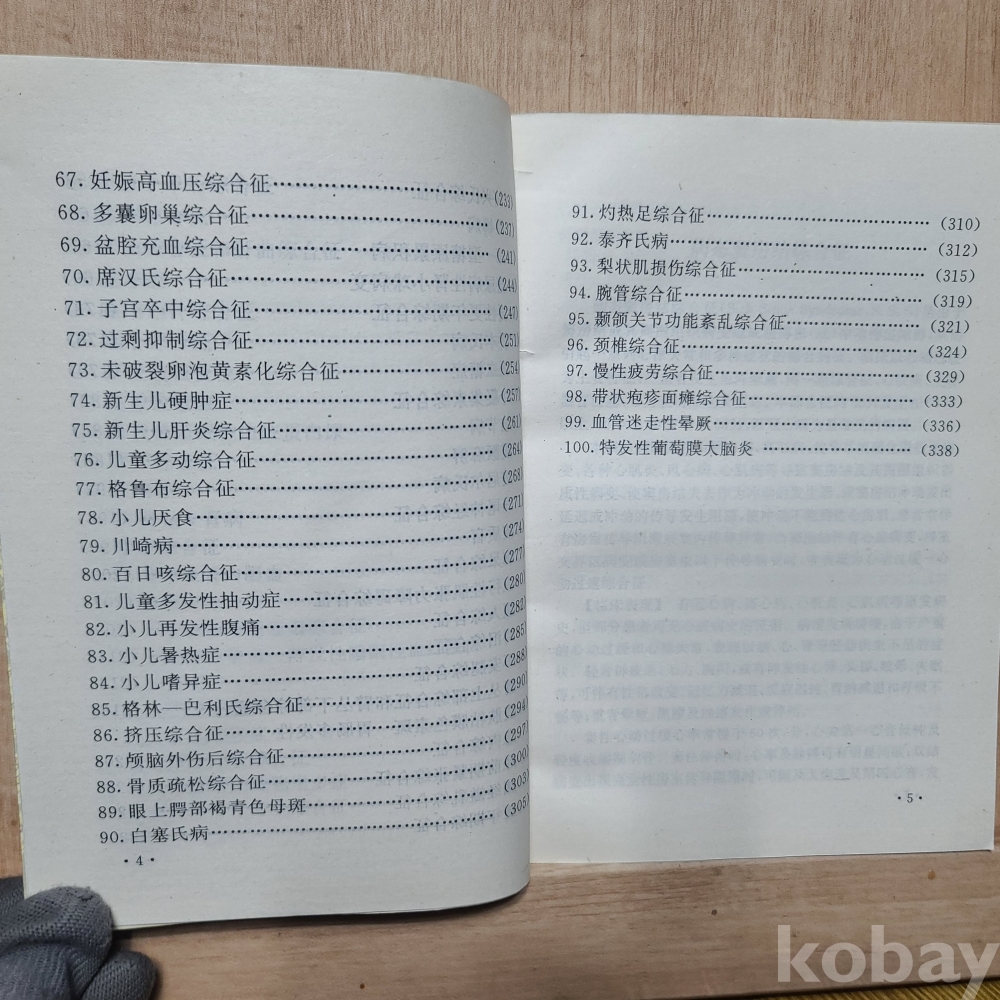 67. 妊娠高血压综合征……………………(233)
68. 多囊卵巢综合征……………………(237)
69. 盆腔充血综合征……………………(241)
70. 席汉氏综合征……………………(244)
71. 子宫卒中综合征……………………(247)
72. 过剩抑制综合征……………………(251)
73. 未破裂卵泡黄素化综合征……………(254)
74. 新生儿硬肿症……………………(257)
75. 新生儿肝炎综合征……………………(261)
76. 儿童多动综合征……………………(264)
77. 格鲁布综合征……………………(268)
78. 小儿厌食……………………(271)
79. 川崎病……………………(274)
80. 百日咳综合征……………………(277)
81. 儿童多发性抽动症……………………(280)
82. 小儿再发性腹痛……………………(282)
83. 小儿暑热症……………………(285)
84. 小儿嗜异症……………………(288)
85. 格林—巴利氏综合征……………………(290)
86. 挤压综合征……………………(294)
87. 颅脑外伤后综合征……………………(297)
88. 骨质疏松综合征……………………(300)
89. 眼上腭部褐青色母斑……………………(303)
90. 白塞氏病……………………(305)
· 4 ·
91. 灼热足综合征……………………(310)
92. 泰齐氏病……………………(312)
93. 梨状肌损伤综合征……………………(315)
94. 腕管综合征……………………(319)
95. 颞颌关节功能紊乱综合征……………(321)
96. 颈椎综合征……………………(324)
97. 慢性疲劳综合征……………………(329)
98. 带状疱疹面瘫综合征……………………(333)
99. 血管迷走性晕厥……………………(336)
100. 特发性葡萄膜大脑炎……………………(338)
· 5 ·
kobay